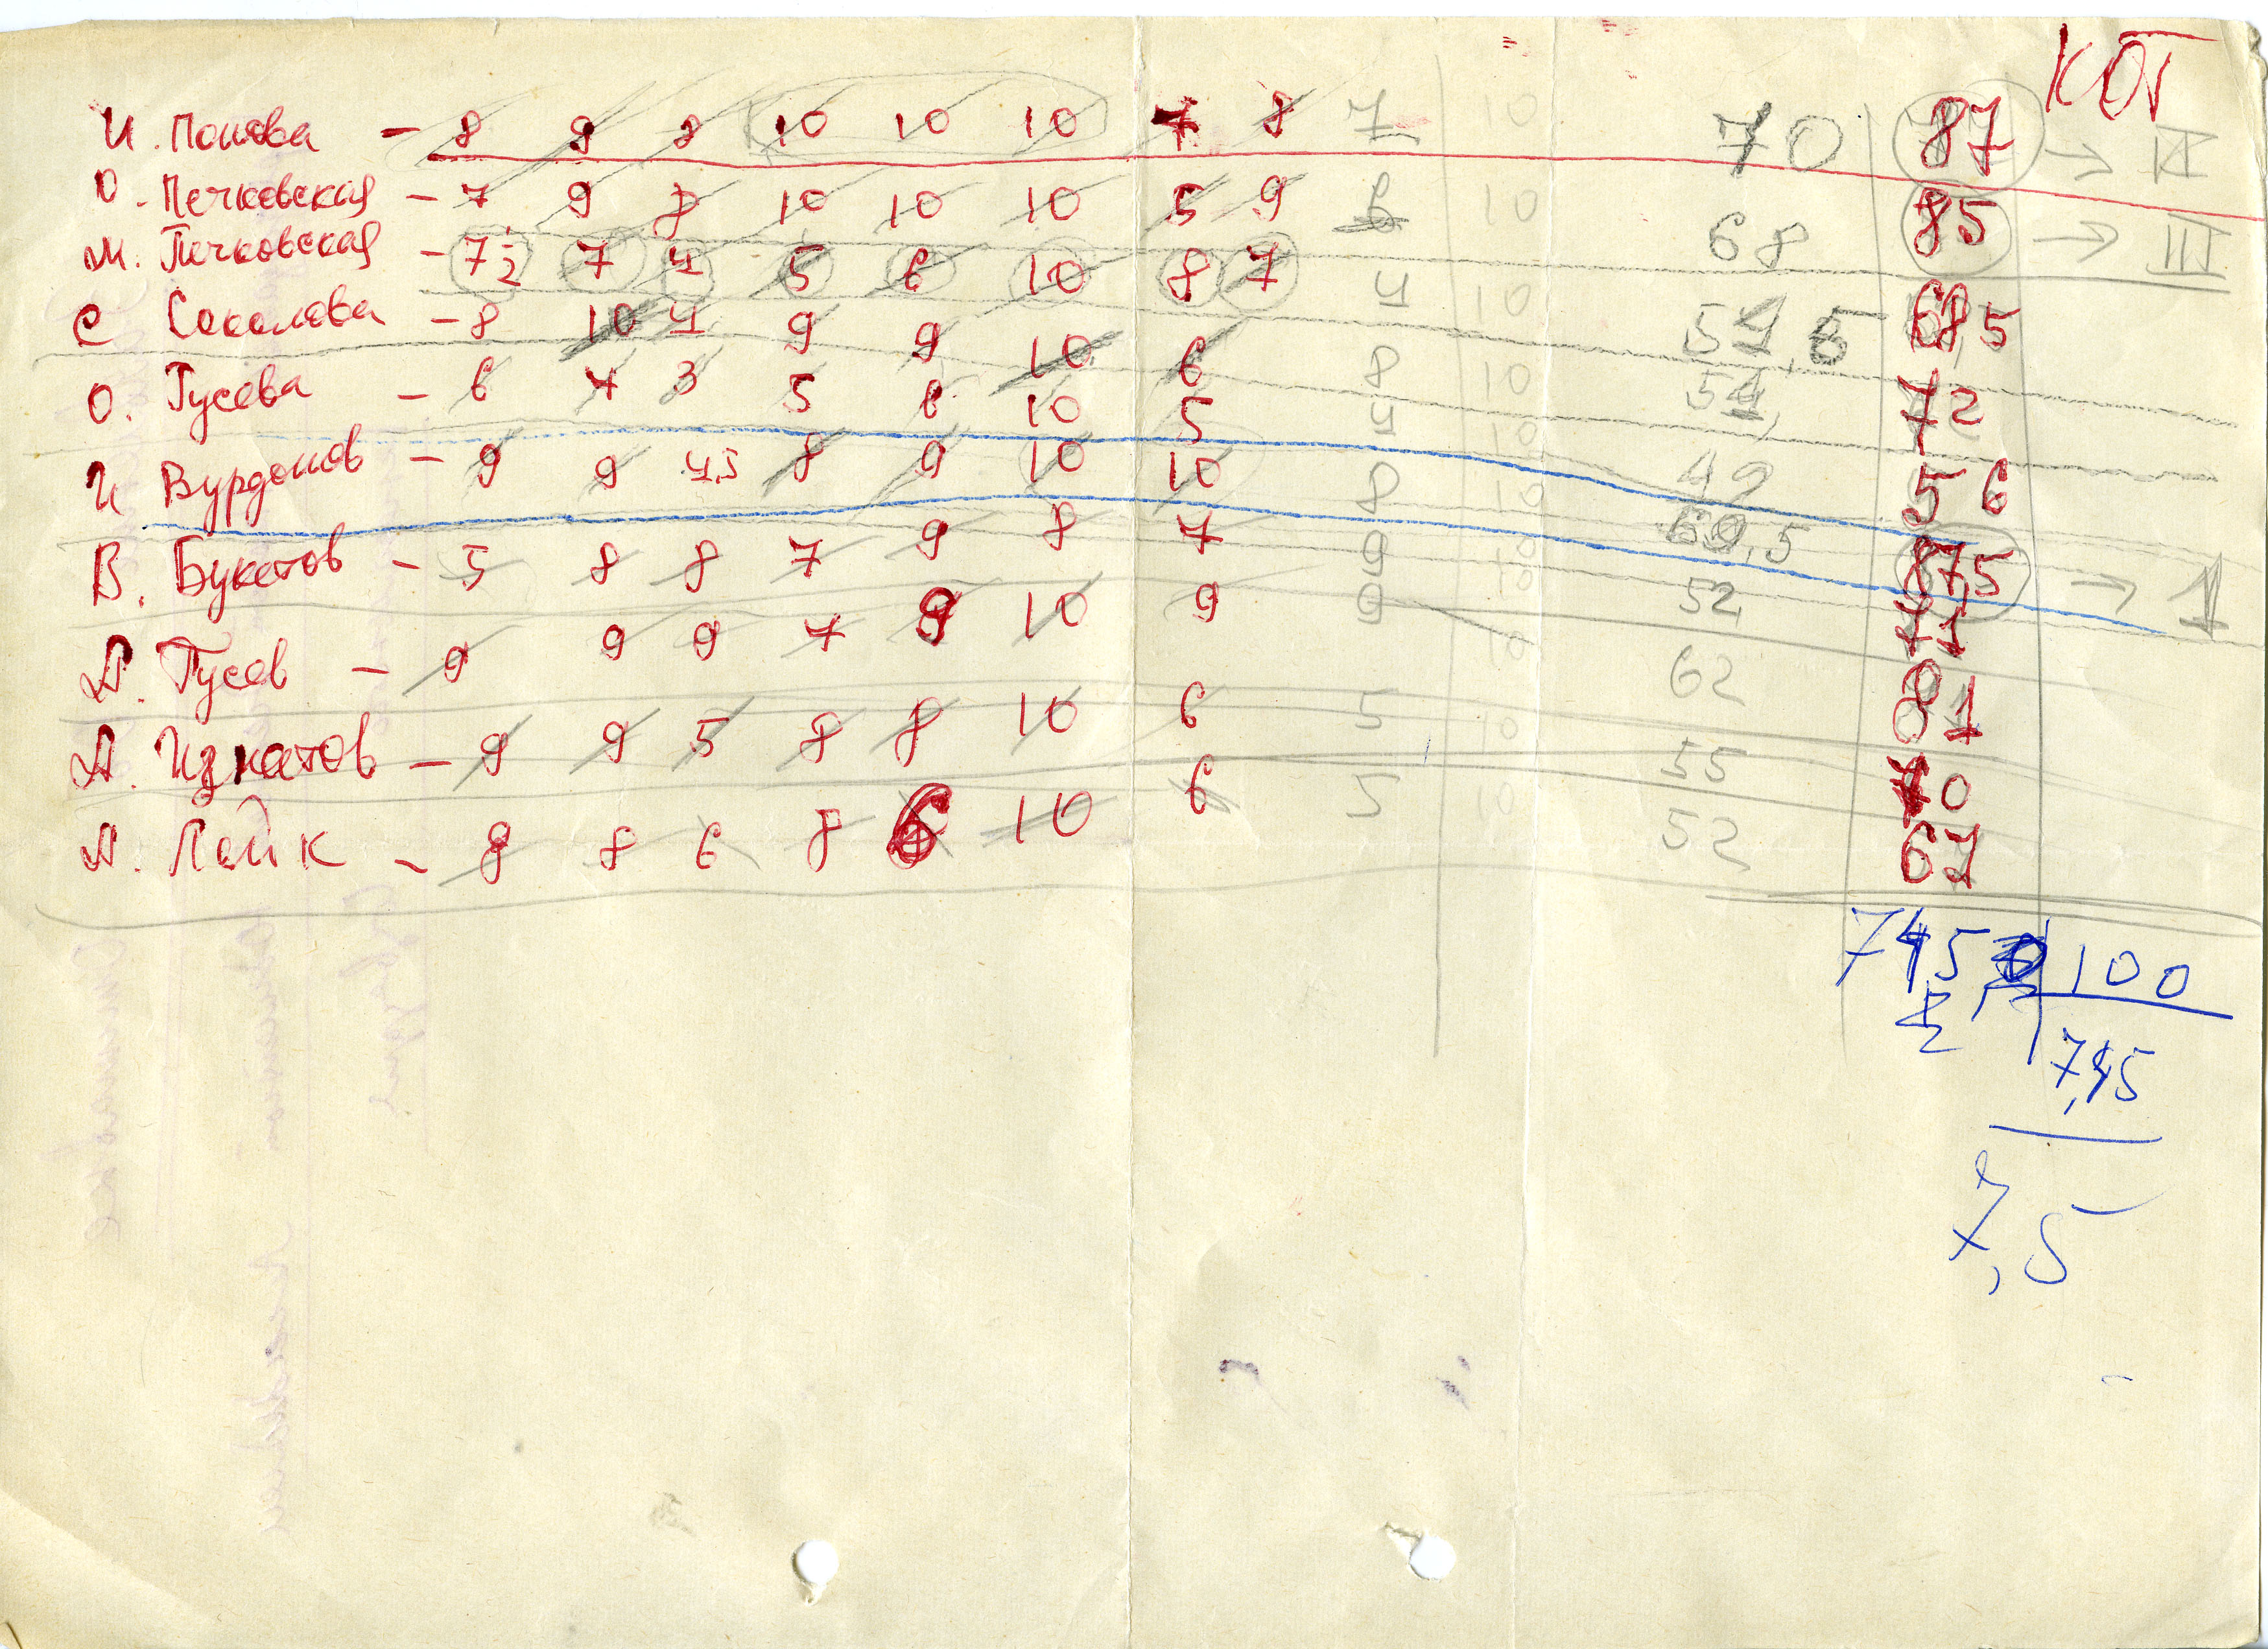 КОТ
И. Попова - 8 9 8 10 10 10 7 8 7 10 70 87 → II
О. Печковская - 7 9 8 10 10 10 5 9 10 68 85 → III
М. Печковская - 7 1/2 7 4 5 6 10 8 7 4 10 68,5
С Соколова - 8 10 4 9 9 10 6 8 10 72
О. Гусева - 6 4 3 5 6 10 5 4 10 49 56
И Вурдонов - 9 9 4,5 8 9 10 10 8 10 87,5 → I
В. Букетов - 5 8 8 7 9 8 7 9 10 52 71
Д. Гусев - 9 9 9 7 9 10 9 9 10 62 81
А. Изматов - 9 9 5 8 8 10 6 5 10 55 70
А. Лойк - 8 8 6 8 6 10 6 5 10 52 67
745 100
7,45
7,5